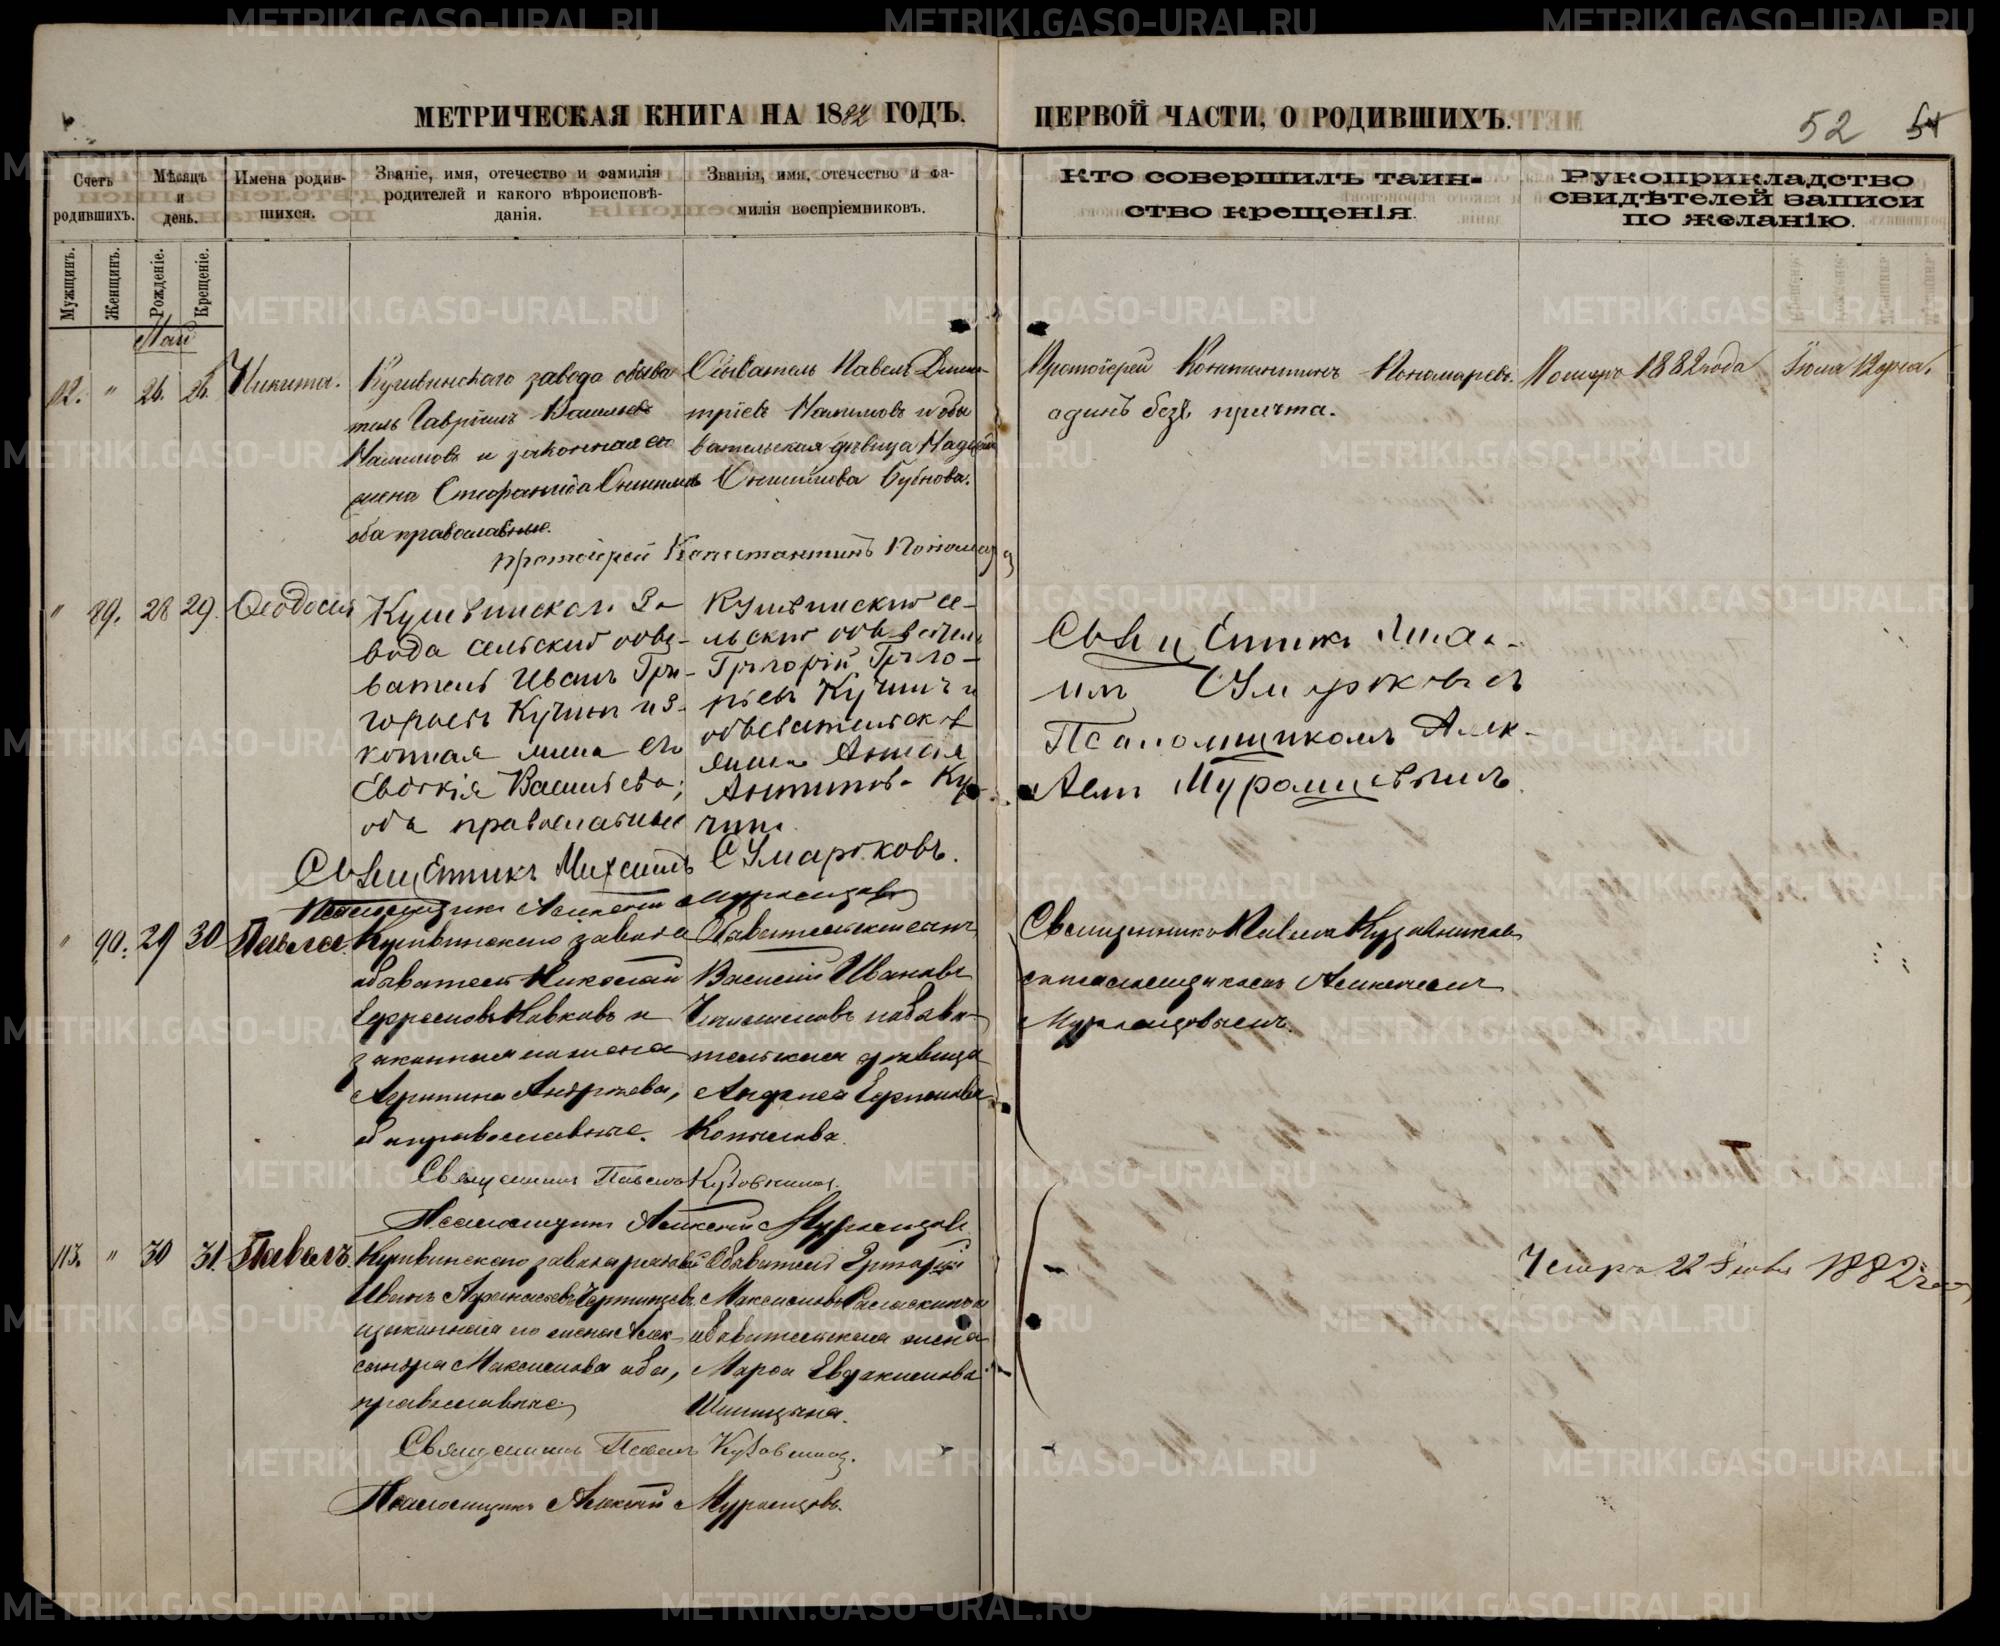 МЕТРИЧЕСКАЯ КНИГА НА 1882 ГОДЪ.
ПЕРВОЙ ЧАСТИ, О РОДИВШИХЪ.
52
Счетъ родившихъ.
Мѣсяцъ и день.
Имена родив-
шихся.
Званіе, имя, отечество и фамилія
родителей и какого вѣроисповѣ-
данія.
Званія, имя, отечество и фа-
милія воспріемниковъ.
Кто совершилъ таин-
ство крещенія.
Рукоприкладство
свидѣтелей записи
по желанію.
Мужчинъ.
Женщинъ.
Рожденіе.
Крещеніе.
Май
112. " 26. 26. Никита.
Кушвинского завода обыва
тель Гавріилъ Васильевъ
и законная его
жена Стефанида
оба православные.
Обыватель Павелъ Дими-
тріевъ и обы
вательская дѣвица Надежда
Бубнова.
Протоіерей Константинъ Пономаревъ
одинъ безъ причта.
Померъ 1882 года Іюня 12 дня.
протоіерей Константинъ Пономарев
" 89. 28 29. Ѳеодосія
Кушвинскаго За-
вода сельский обы-
ватель Иванъ Гри-
горьевъ Кучинъ и за-
конная жена его
Евдокія Васильева;
оба православные
Кушвинский се-
льский обыватель
Григорій Григо-
рьевъ Кучинъ и
обывательская
жена Анна
Антипова Ку-
чина.
Священникъ Миха-
илъ Сумароковымъ
Псаломщикомъ Алек-
сѣемъ Муромцевымъ.
Священникъ Михаилъ Сумароковъ.
Псаломщикъ Алексѣй Муромцовъ
" 90. 29 30 Павла.
Кушвинскаго завода
обыватель Николай
Ефремовъ Ковковъ и
законная его жена
Агрипина Андреева,
оба православные.
Обывательскій сынъ
Василій Ивановъ
и обыва-
тельская дѣвица
Ефимова
Копылова.
Священникомъ Павломъ Кузовниковымъ
съ псаломщикомъ Алексѣемъ
Муромцовымъ.
Священникъ Павелъ Кузовниковъ.
Псаломщикъ Алексѣй Муромцовъ
113. " 30 31. Павелъ.
Кушвинскаго завода
Иванъ Афанасьевъ
и законная его жена Алек-
сандра Максимова оба,
православные
Обыватель Григорій
Максимовъ и
обывательская жена
Марѳа Евдокимова
Шипицына.
Умеръ 22 Іюня 1882 года
Священникъ Павелъ Кузовниковъ.
Псаломщикъ Алексѣй Муромцовъ.
METRIKI.GASO-URAL.RU